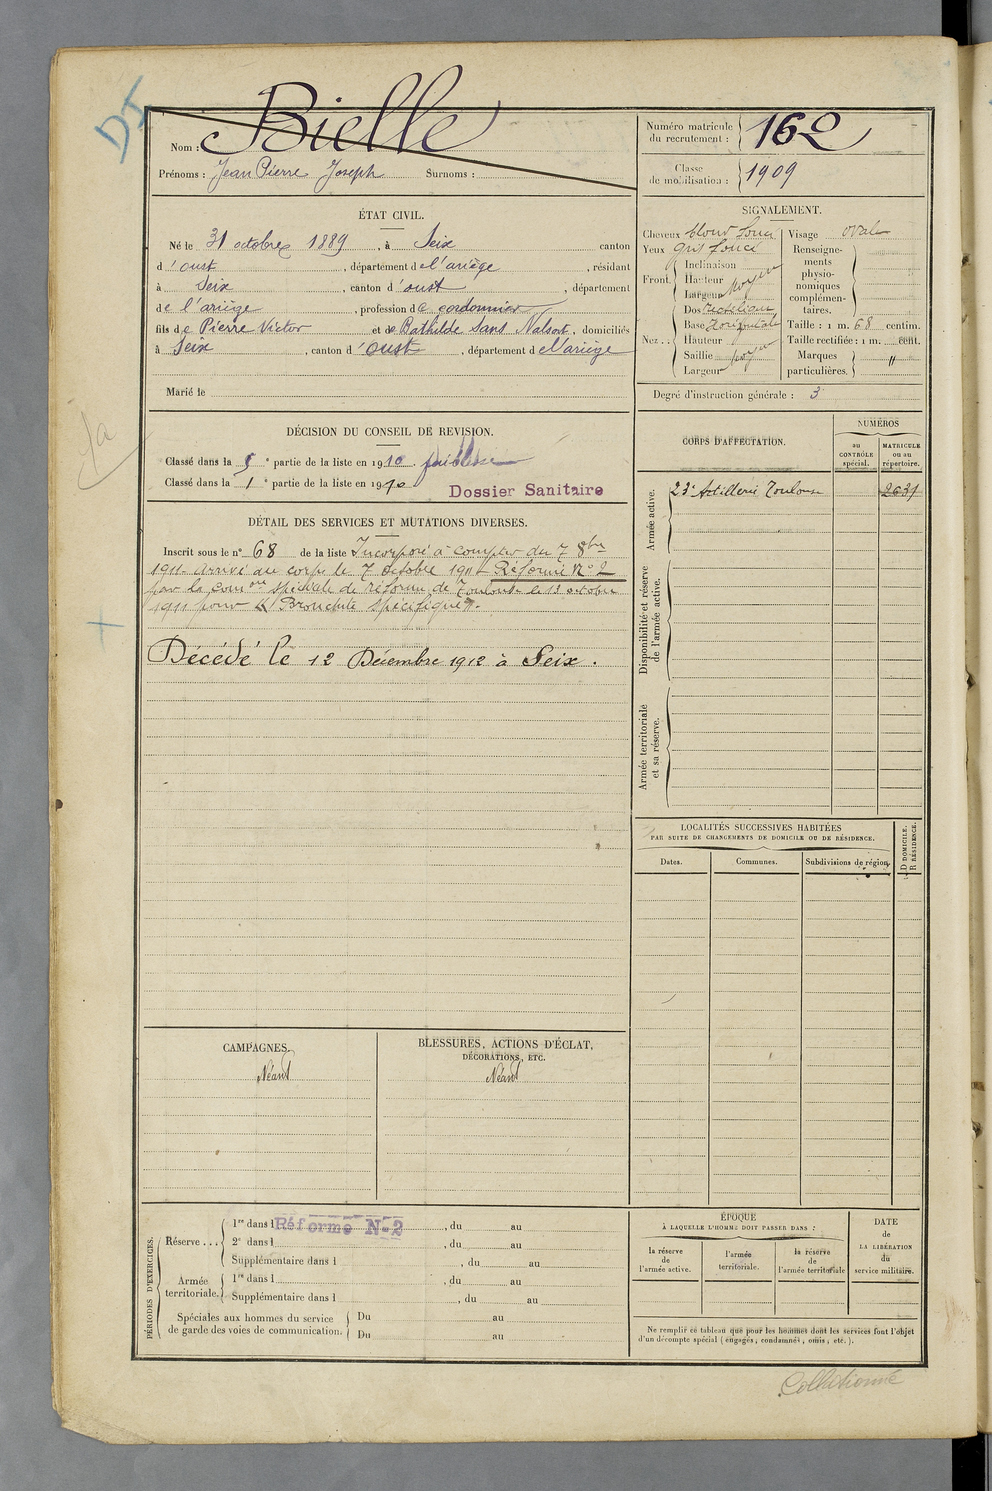 DI
Nom : Bielle
Prénoms : Jean Pierre Joseph Surnoms :
Numéro matricule du recrutement : 162
Classe de mobilisation : 1909
ÉTAT CIVIL.
Né le 31 octobre 1889, à Seix canton
d'oust, département de l'ariège, résidant
à Seix, canton d'oust, département
de l'ariège, profession de cordonnier
fils de Pierre Victor et de Bathilde Sans Nalsort, domiciliés
à Seix, canton d'oust, département de l'ariège
Marié le
SIGNALEMENT.
Cheveux blond foncé
Yeux gris foncé
Front. Inclinaison
Hauteur moyen
Largeur
Nez. : Dos rectiligne
Base horizontale
Hauteur
Saillie moyen
Largeur
Visage ovale
Renseignements physionomiques complémentaires.
Taille : 1 m. 68 centim.
Taille rectifiée : 1 m. cent.
Marques particulières. "
Degré d'instruction générale : 3
DÉCISION DU CONSEIL DE REVISION.
Classé dans la 5e partie de la liste en 1910. faiblesse
Classé dans la 1e partie de la liste en 1910
Dossier Sanitaire
DÉTAIL DES SERVICES ET MUTATIONS DIVERSES.
Inscrit sous le no 68 de la liste Incorporé à compter du 7 8bre
1911. Arrivé au corps le 7 octobre 1911 Réformé No 2
par la comon spéciale de réforme de Toulouse le 13 octobre
1911 pour "Bronchite spécifique".
Décédé le 12 Décembre 1912 à Seix.
CORPS D'AFFECTATION.
NUMÉROS
au CONTRÔLE spécial.
MATRICULE ou au répertoire.
Armée active.
23e Artillerie Toulouse 2631
Disponibilité et réserve de l'armée active.
Armée territoriale et sa réserve.
LOCALITÉS SUCCESSIVES HABITÉES
PAR SUITE DE CHANGEMENTS DE DOMICILE OU DE RÉSIDENCE.
Dates. Communes. Subdivisions de région.
D DOMICILE.
R RÉSIDENCE.
CAMPAGNES.
Néant
BLESSURES, ACTIONS D'ÉCLAT,
DÉCORATIONS, ETC.
Néant
PÉRIODES D'EXERCICES.
Réserve ... 1re dans l Réforme N-2, du au
2e dans l, du au
Supplémentaire dans l, du au
Armée territoriale. 1re dans l, du au
Supplémentaire dans l, du au
Spéciales aux hommes du service de garde des voies de communication.
Du au
Du au
ÉPOQUE
À LAQUELLE L'HOMME DOIT PASSER DANS :
la réserve de l'armée active.
l'armée territoriale.
la réserve de l'armée territoriale
DATE de LA LIBÉRATION du service militaire.
Ne remplir ce tableau que pour les hommes dont les services font l'objet
d'un décompte spécial (engagés, condamnés, omis, etc.).
Collationné